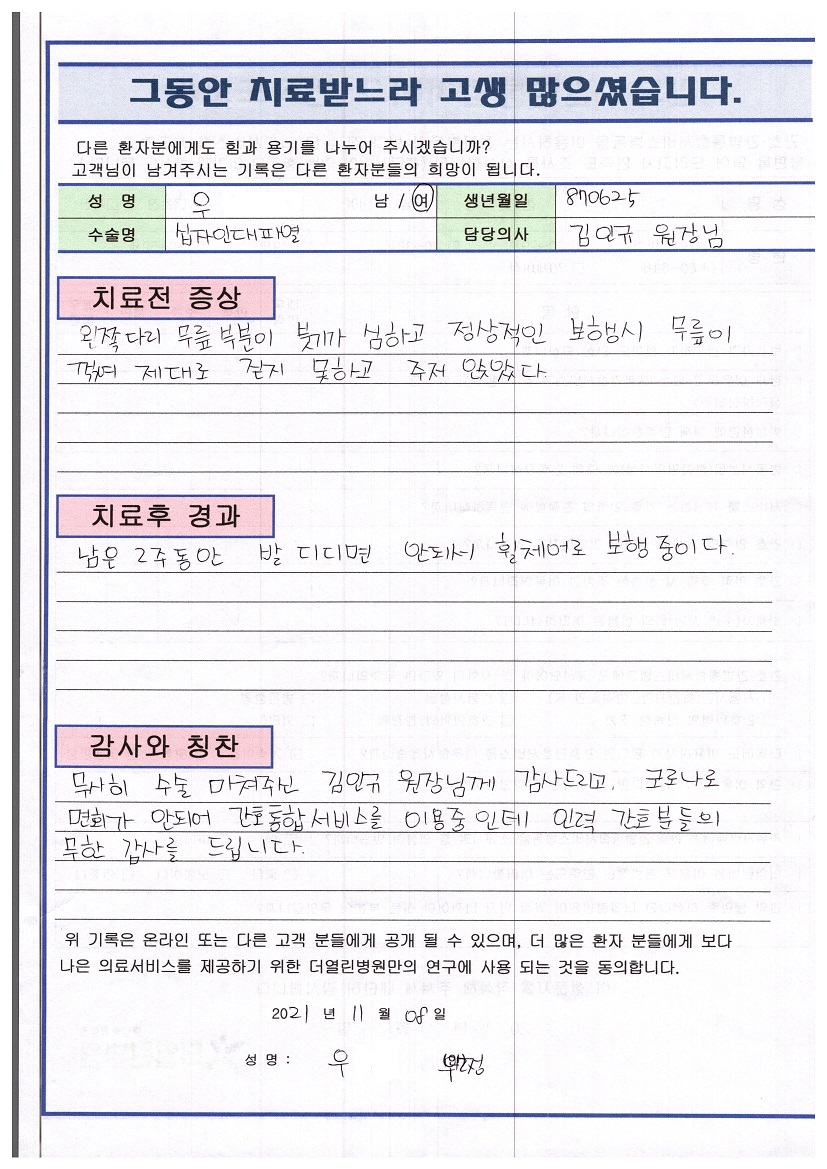 그동안 치료받느라 고생 많으셨습니다.
다른 환자분에게도 힘과 용기를 나누어 주시겠습니까?
고객님이 남겨주시는 기록은 다른 환자분들의 희망이 됩니다.
성 명 우 남 / 여 생년월일 870625
수술명 십자인대파열 담당의사 김인규 원장님
치료전 증상
왼쪽다리 무릎 부분이 붓기가 심하고 정상적인 보행시 무릎이
꺾여 제대로 걷지 못하고 주저 앉았다.
치료후 경과
남은 2주동안 발 디디면 안되시 휠체어로 보행중이다.
감사와 칭찬
무사히 수술 마쳐주신 김인규 원장님께 감사드리고, 코로나로
면회가 안되어 간호통합서비스를 이용중인데 인력 간호분들의
무한 감사를 드립니다.
위 기록은 온라인 또는 다른 고객 분들에게 공개 될 수 있으며, 더 많은 환자 분들에게 보다
나은 의료서비스를 제공하기 위한 더열린병원만의 연구에 사용 되는 것을 동의합니다.
2021 년 11 월 08 일
성 명 : 우